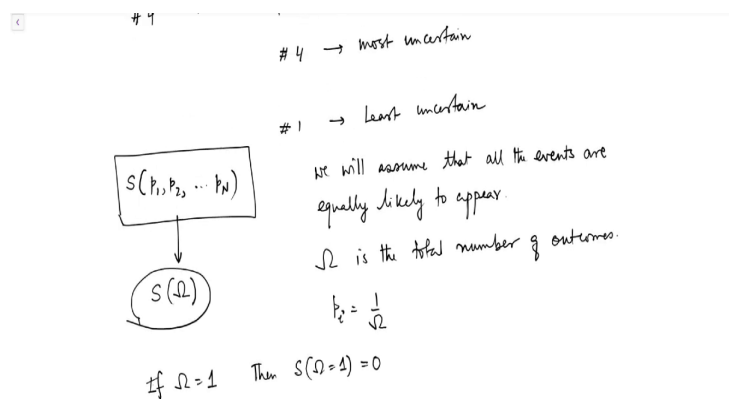 # 4
# 4 → most uncertain
# 1 → Least uncertain
S(p₁, p₂, ... p_N)
we will assume that all the events are
equally likely to appear.
Ω is the total number of outcomes.
S(Ω)
p_i = 1/Ω
If Ω = 1 Then S(Ω = 1) = 0